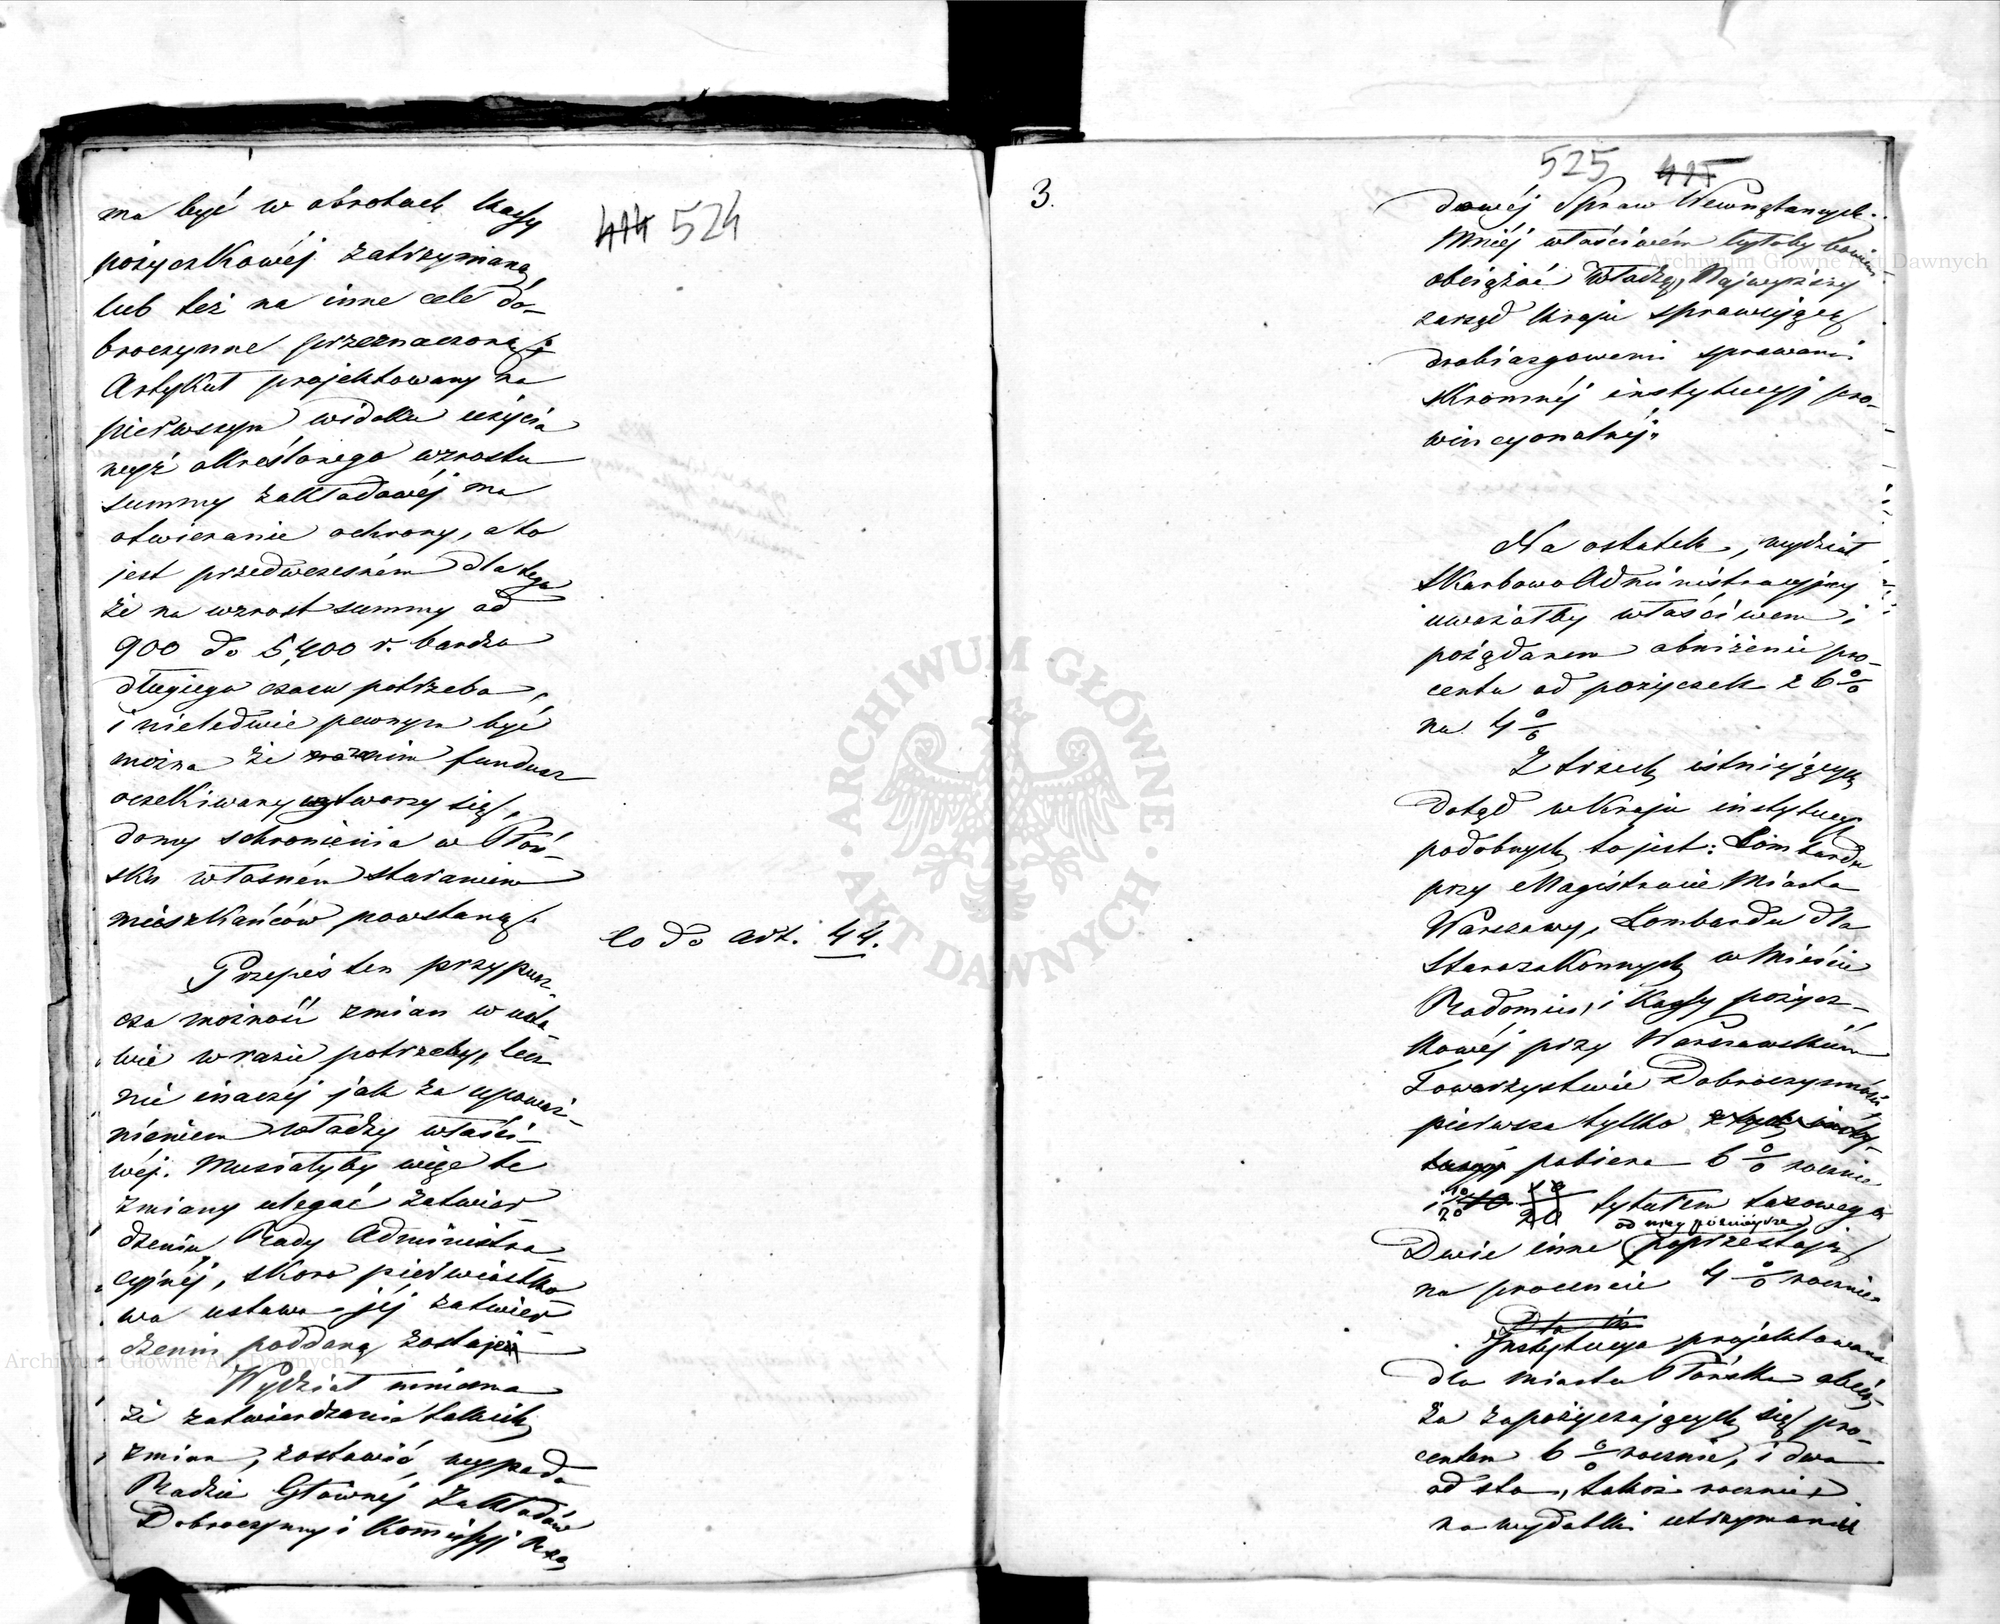 414 524
ma być w obrotach Kassy
pożyczkowéj zatrzymaną
lub też na inne cele do-
broczynne przeznaczoną
Artykuł projektowany na
pierwszym widoku użycia
wyż określonego wzrostu
summy zakładowéj na
otwieranie ochrony, a to
jest przedwczesném dla tego
że na wzrost summy od
900 do 5,400 r. bardzo
długiego czasu potrzeba,
i nieledwie pewnym być
można że nim fundusz
oczekiwany wytworzy się,
domy schronienia w Płoń-
sku własném staraniem
mieszkańców powstaną.
co do art. 44.
Przepis ten przypusz-
cza możność zmian w usta-
wie w razie potrzeby, lecz
nie inaczéj jak za upoważ-
nieniem władzy właści-
wéj. Musiałyby więc te
zmiany ulegać zatwier-
dzeniu Rady Administra-
cyjnéj, skoro pierwiastko-
wa ustawa jéj zatwier-
dzeniu poddaną zostaje
Wydział mniema
że zatwierdzenie takich
zmian, zostawić wypada
Radzie Głównéj Zakładów
Dobroczynnych i Kommissyi Rzą
525 415
3.
dowéj Spraw Wewnętrznych.
Mniéj właściwém byłoby bowiem
obciążać Władzę, Najwyższy
zarząd Kraju sprawującą
drobiazgowemi sprawami
skromnéj instytucyj pro-
wincyonalnéj.
Na ostatek, wydział
Skarbowo Administracyjny
uważałby właściwem i
pożądanem obniżenie pro-
centu od pożyczek z 6 %
na 4 %
Z trzech istniejących
dotąd w Kraju instytucyj
podobnych to jest: Lombardu
przy Magistracie Miasta
Warszawy, Lombardu dla
Starozakonnych w Mieście
Radomiu, i Kassy pożycz-
kowéj przy Warszawskiém
Towarzystwie Dobroczynności
pierwsza tylko z tych insty-
tucyj pobiera 6 % rocznie
i tytułem taxowego
Dwie inne poprzestają
na procencie 4 % rocznie
Dla
Instytucya projektowana
dla miasta Płońska obcią-
ża zapożyczających się pro-
centem 6 % rocznie, i dwa
od sta, takoż rocznie,
na wydatki utrzymania
ARCHIWUM GŁÓWNE AKT DAWNYCH
Archiwum Główne Akt Dawnych
Archiwum Główne Akt Dawnych